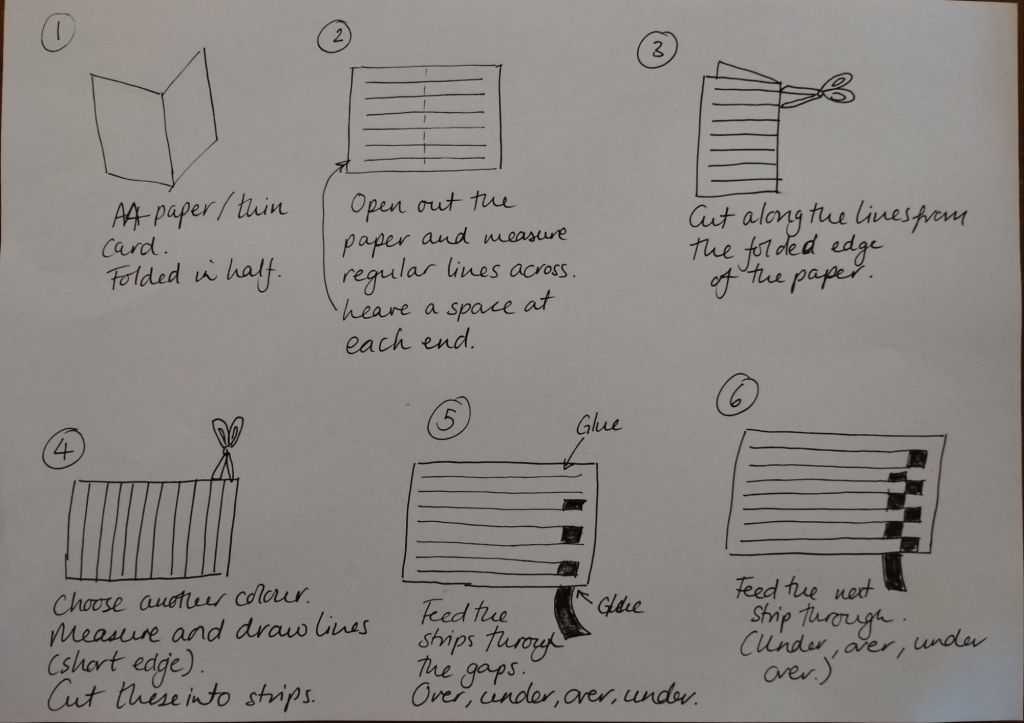 1
A4 paper/thin
card.
Folded in half.
2
Open out the
paper and measure
regular lines across.
Leave a space at
each end.
3
Cut along the lines from
the folded edge
of the paper.
4
Choose another colour.
Measure and draw lines
(short edge).
Cut these into strips.
5
Glue
Glue
Feed the
strips through
the gaps.
Over, under, over, under.
6
Feed the next
strip through.
(Under, over, under
over.)